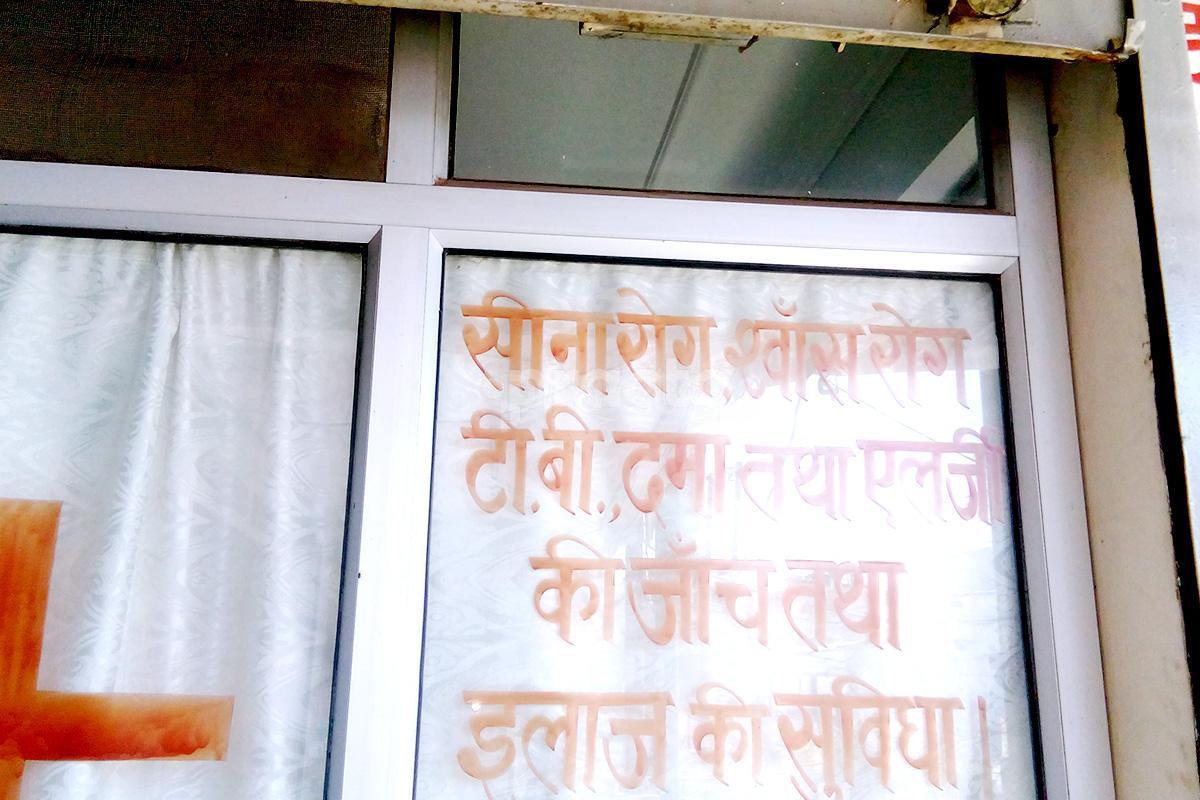 सीना रोग, श्वाँस रोग
टी.बी., दमा तथा एलर्जी
की जाँच तथा
इलाज की सुविधा।